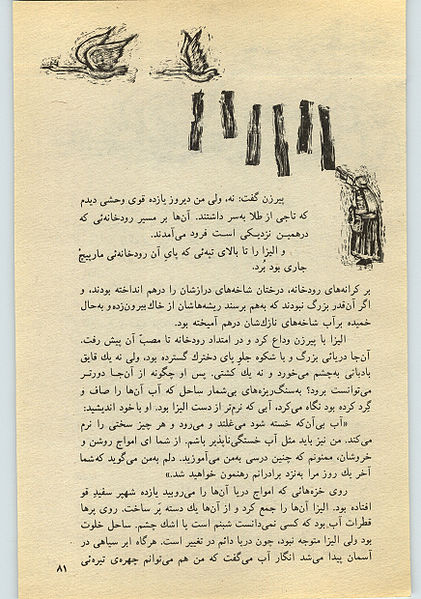 پیرزن گفت: نه، ولی من دیروز یازده قوی وحشی دیدم
که تاجی از طلا به‌سر داشتند. آن‌ها بر مسیر رودخانه‌ئی که
درهمین نزدیکی است فرود می‌آمدند.
و الیزا را تا بالای تپه‌ئی که پای آن رودخانه‌ئی مارپیچ
جاری بود برد.
بر کرانه‌های رودخانه، درختان شاخه‌های درازشان را درهم انداخته بودند، و
اگر آن‌قدر بزرگ نبودند که به‌هم برسند ریشه‌هاشان از خاك بیرون‌زده و به‌حال
خمیده برآب شاخه‌های نازك‌شان درهم آمیخته بود.
الیزا با پیرزن وداع کرد و در امتداد رودخانه تا مصبّ آن پیش رفت.
آن‌جا دریائی بزرگ و با شکوه جلو پای دخترك گسترده بود، ولی نه یك قایق
بادبانی به‌چشم می‌خورد و نه یك کشتی. پس او چگونه از آن‌جا دورتر
می‌توانست برود؟ به‌سنگ‌ریزه‌های بی‌شمار ساحل که آب آن‌ها را صاف و
گِرد کرده بود نگاه می‌کرد، آبی که نرم‌تر از دست الیزا بود. او با خود اندیشید:
«آب بی‌آن‌که خسته شود می‌غلتد و می‌رود و هر چیز سختی را نرم
می‌کند. من نیز باید مثل آب خستگی‌ناپذیر باشم. از شما ای امواج روشن و
خروشان، ممنونم که چنین درسی به‌من می‌آموزید. دلم به‌من می‌گوید که‌شما
آخر یك روز مرا به‌نزد برادرانم رهنمون خواهید شد.»
روی خزه‌هائی که امواج دریا آن‌ها را می‌روبید یازده شهپر سفید قو
افتاده بود. الیزا آن‌ها را جمع کرد و از آن‌ها یك دسته پَر ساخت. روی پرها
قطرات آب بود که کسی نمی‌دانست شبنم است یا اشك چشم. ساحل خلوت
بود ولی الیزا متوجه نبود، چون دریا دائم در تغییر است. هرگاه ابر سیاهی در
آسمان پیدا می‌شد انگار آب می‌گفت که من هم می‌توانم چهره‌ی تیره‌ئی
۸۱